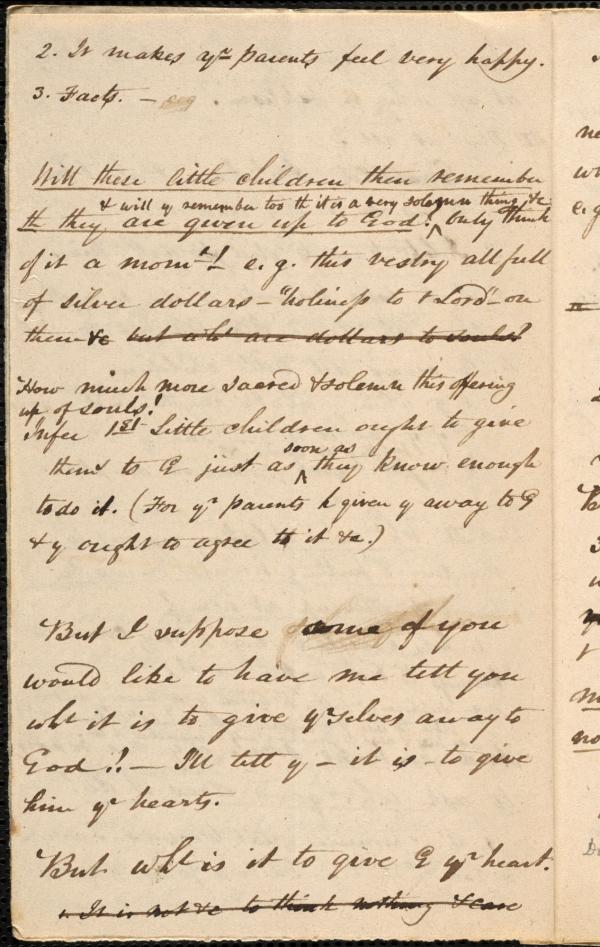 2. It makes yr parents feel very happy.
3. Facts. — e.g
Will these little children then remember
& will y remember too th it is a very solemn thing &c
th they are given up to God! only think
of it a momt! e.g. this vestry all full
of silver dollars — "holiness to t Lord" on
them &c but wht are dollars to souls?
How much more sacred & solemn this offering
up of souls!
Infer 1st Little children ought to give
soon as
thems to G just as they know enough
to do it. (For yr parents h given y away to G
& y ought to agree to it &c.)
But I suppose some of you
would like to have me tell you
wht it is to give yrselves away to
God!! — I'll tell y — it is - to give
him yr hearts.
But wht is it to give G yr heart.
1. It is not &c to think nothing & care
ne
e.g